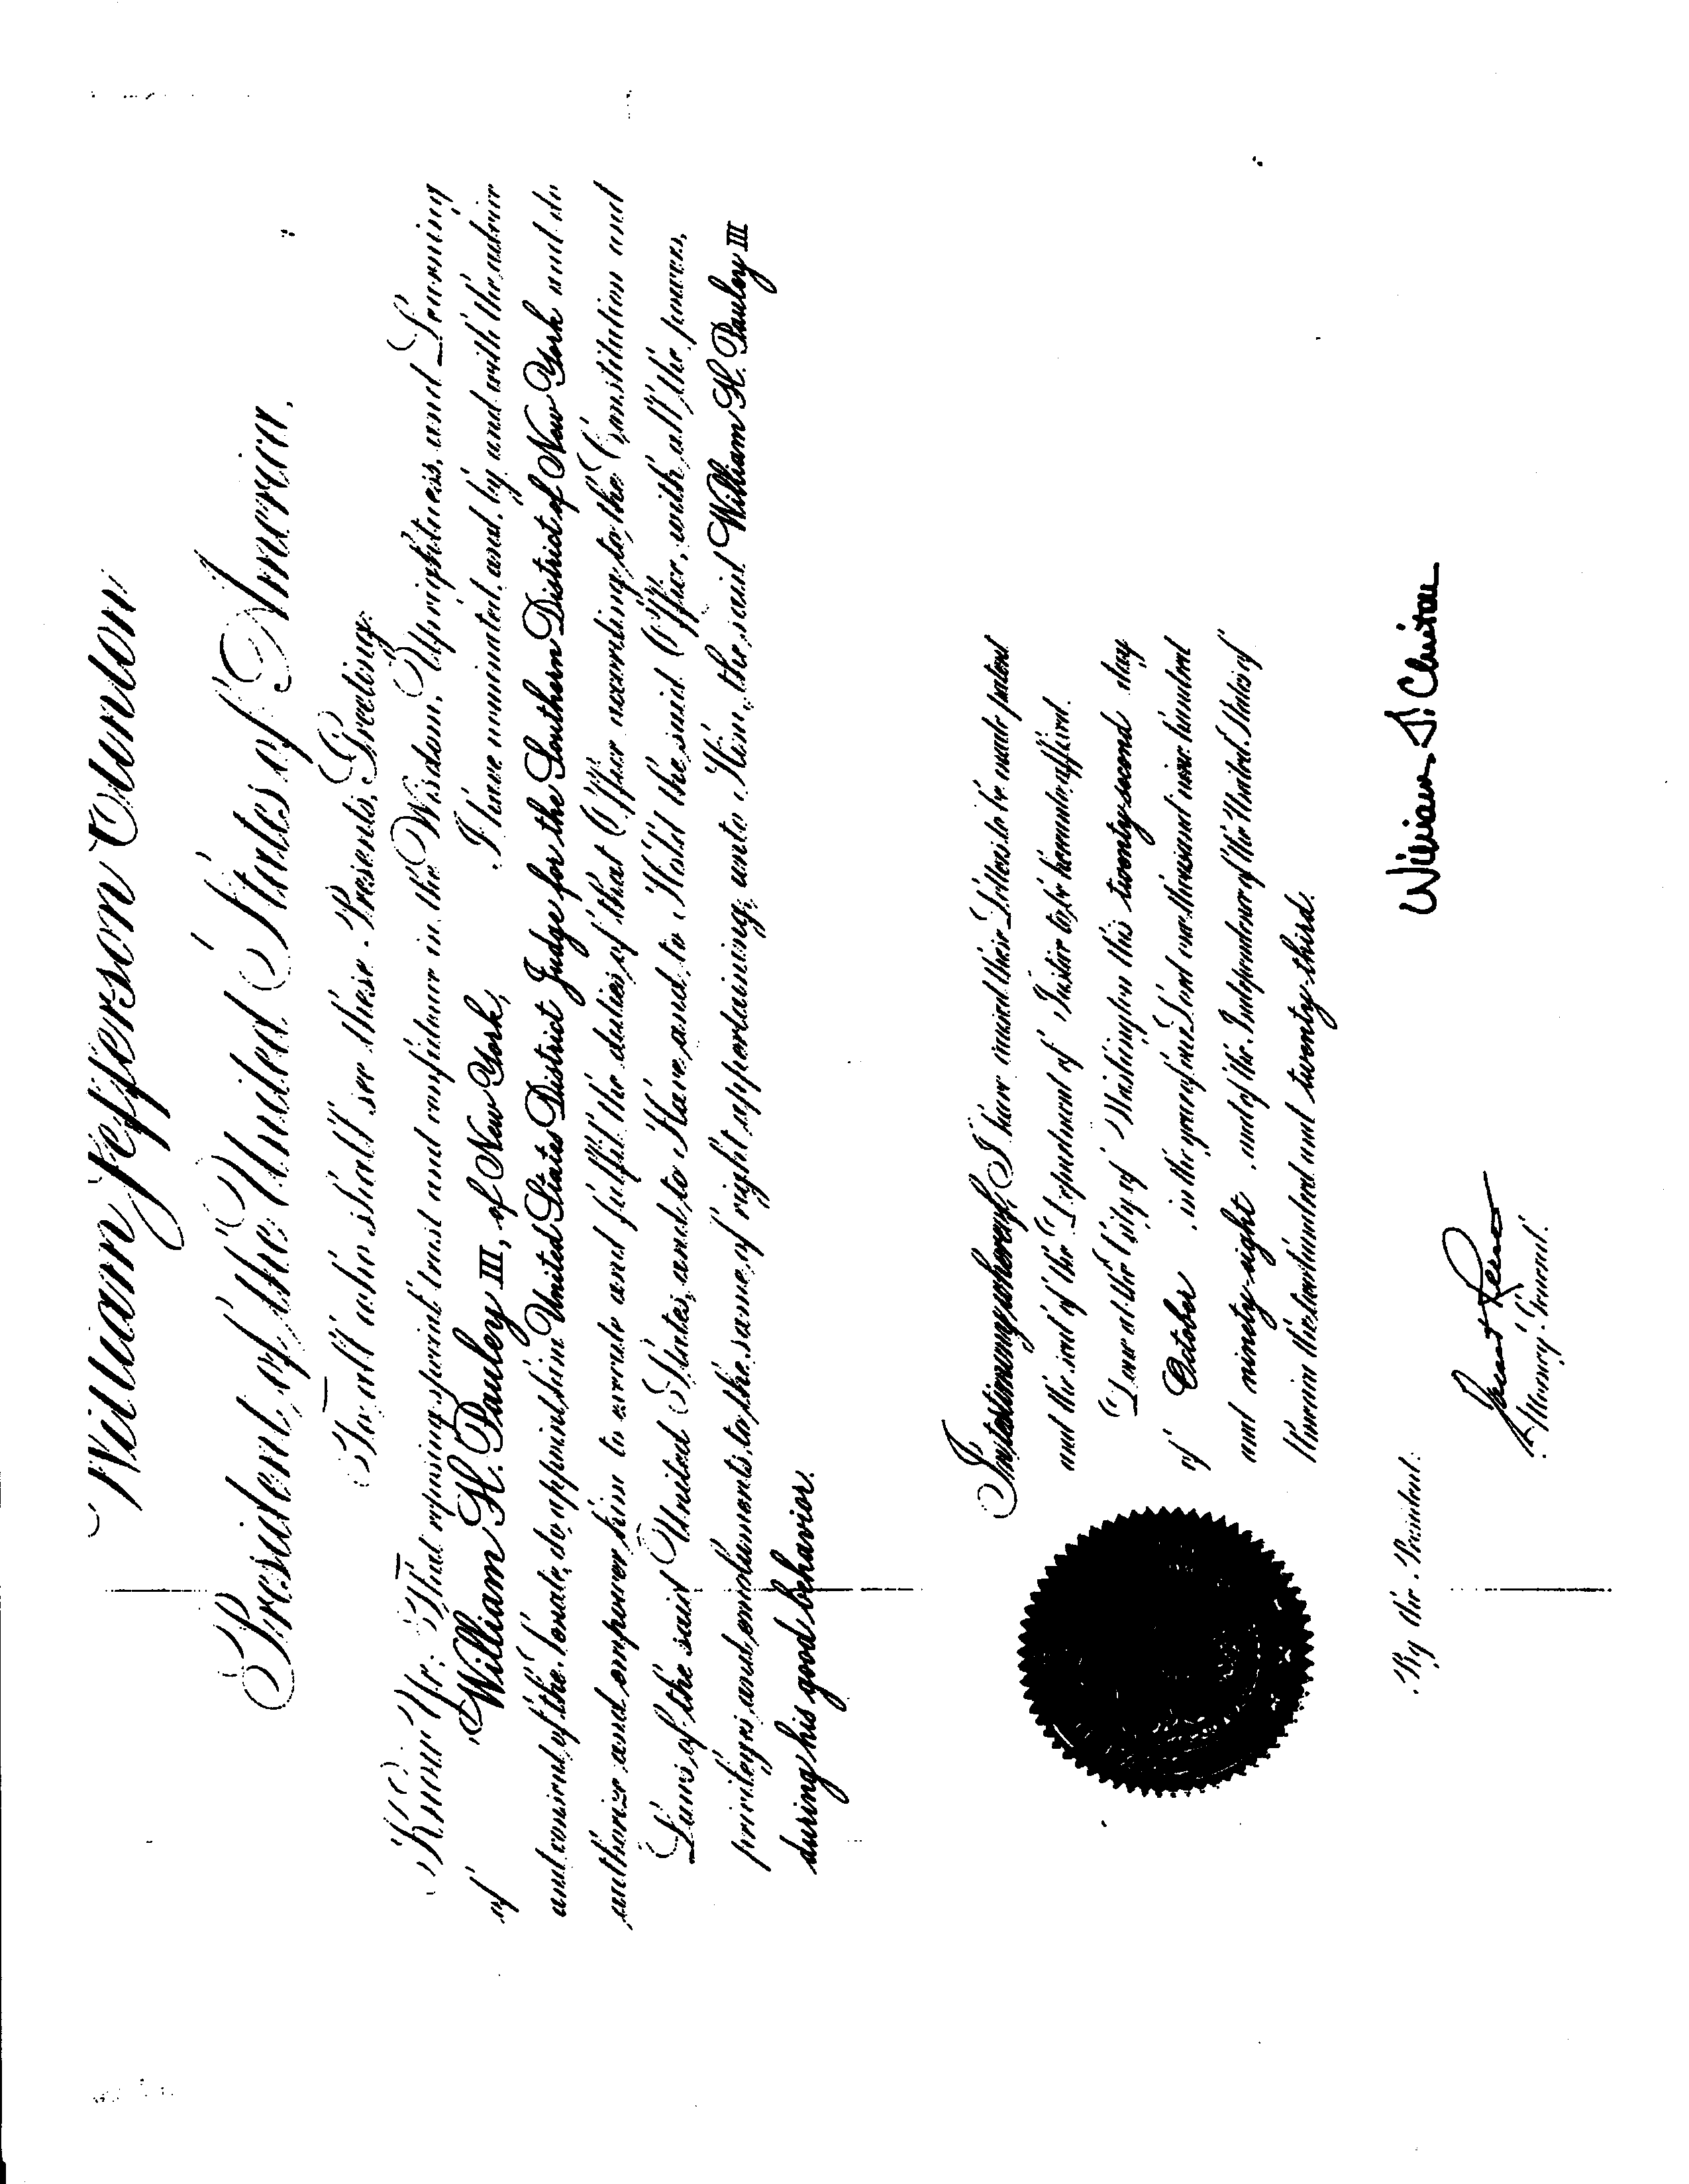 William Jefferson Clinton
President of the United States of America.
To all who shall see these Presents, Greeting:
Know Ye: That reposing special trust and confidence in the Wisdom, Uprightness, and Learning
of William H. Pauley III, of New York, I have nominated, and, by and with the advice
and consent of the Senate, do appoint him United States District Judge for the Southern District of New York and do
authorize and empower him to execute and fulfil the duties of that Office according to the Constitution and
Laws of the said United States, and to Have and to Hold the said Office, with all the powers,
privileges and emoluments to the same of right appertaining, unto Him, the said William H. Pauley III
during his good behavior.
In testimony whereof, I have caused these Letters to be made patent
and the seal of the Department of Justice to be hereunto affixed.
Done at the City of Washington this twenty-second day
of October in the year of our Lord one thousand nine hundred
and ninety-eight and of the Independence of the United States of
America the two hundred and twenty-third.
William J. Clinton
By the President:
Janet Reno
Attorney General.